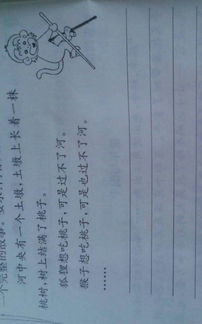 一个完整的故事。
河中央有一个土墩,土墩上长着一株
桃树,树上结满了桃子。
狐狸想吃桃子,可是过不了河。
猴子想吃桃子,可是也过不了河。
……